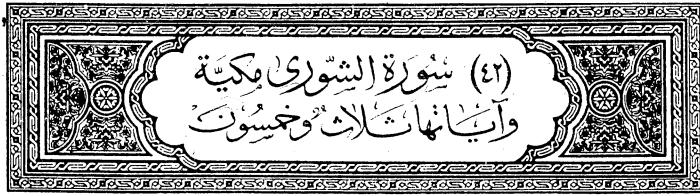 (٤٢) سُورَة الشّورى مكيّة
وَآيَاتهَا ثلاثٌ وخمسُون